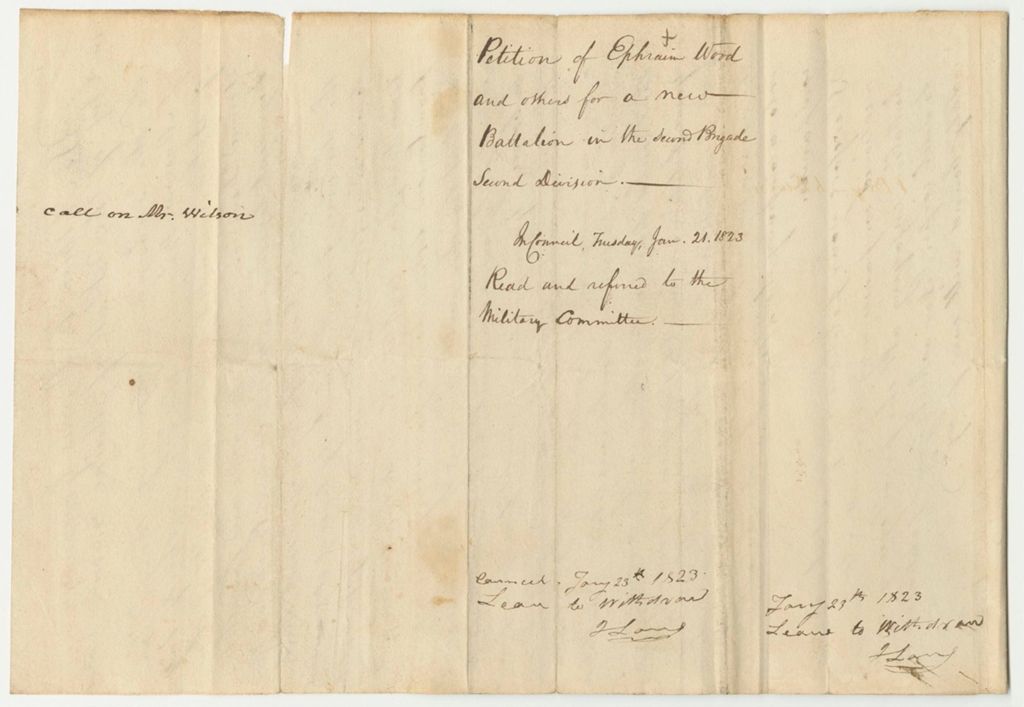 call on Mr. Wilson
Petition of Ephraim Wood
and others for a new
Battalion in the Second Brigade
Second Division.
In Council, Tuesday, Jan. 21. 1823
Read and referred to the
Military Committee.
Council. Jany 23th 1823
Leave to Withdraw
Jany 23th 1823
Leave to Withdraw